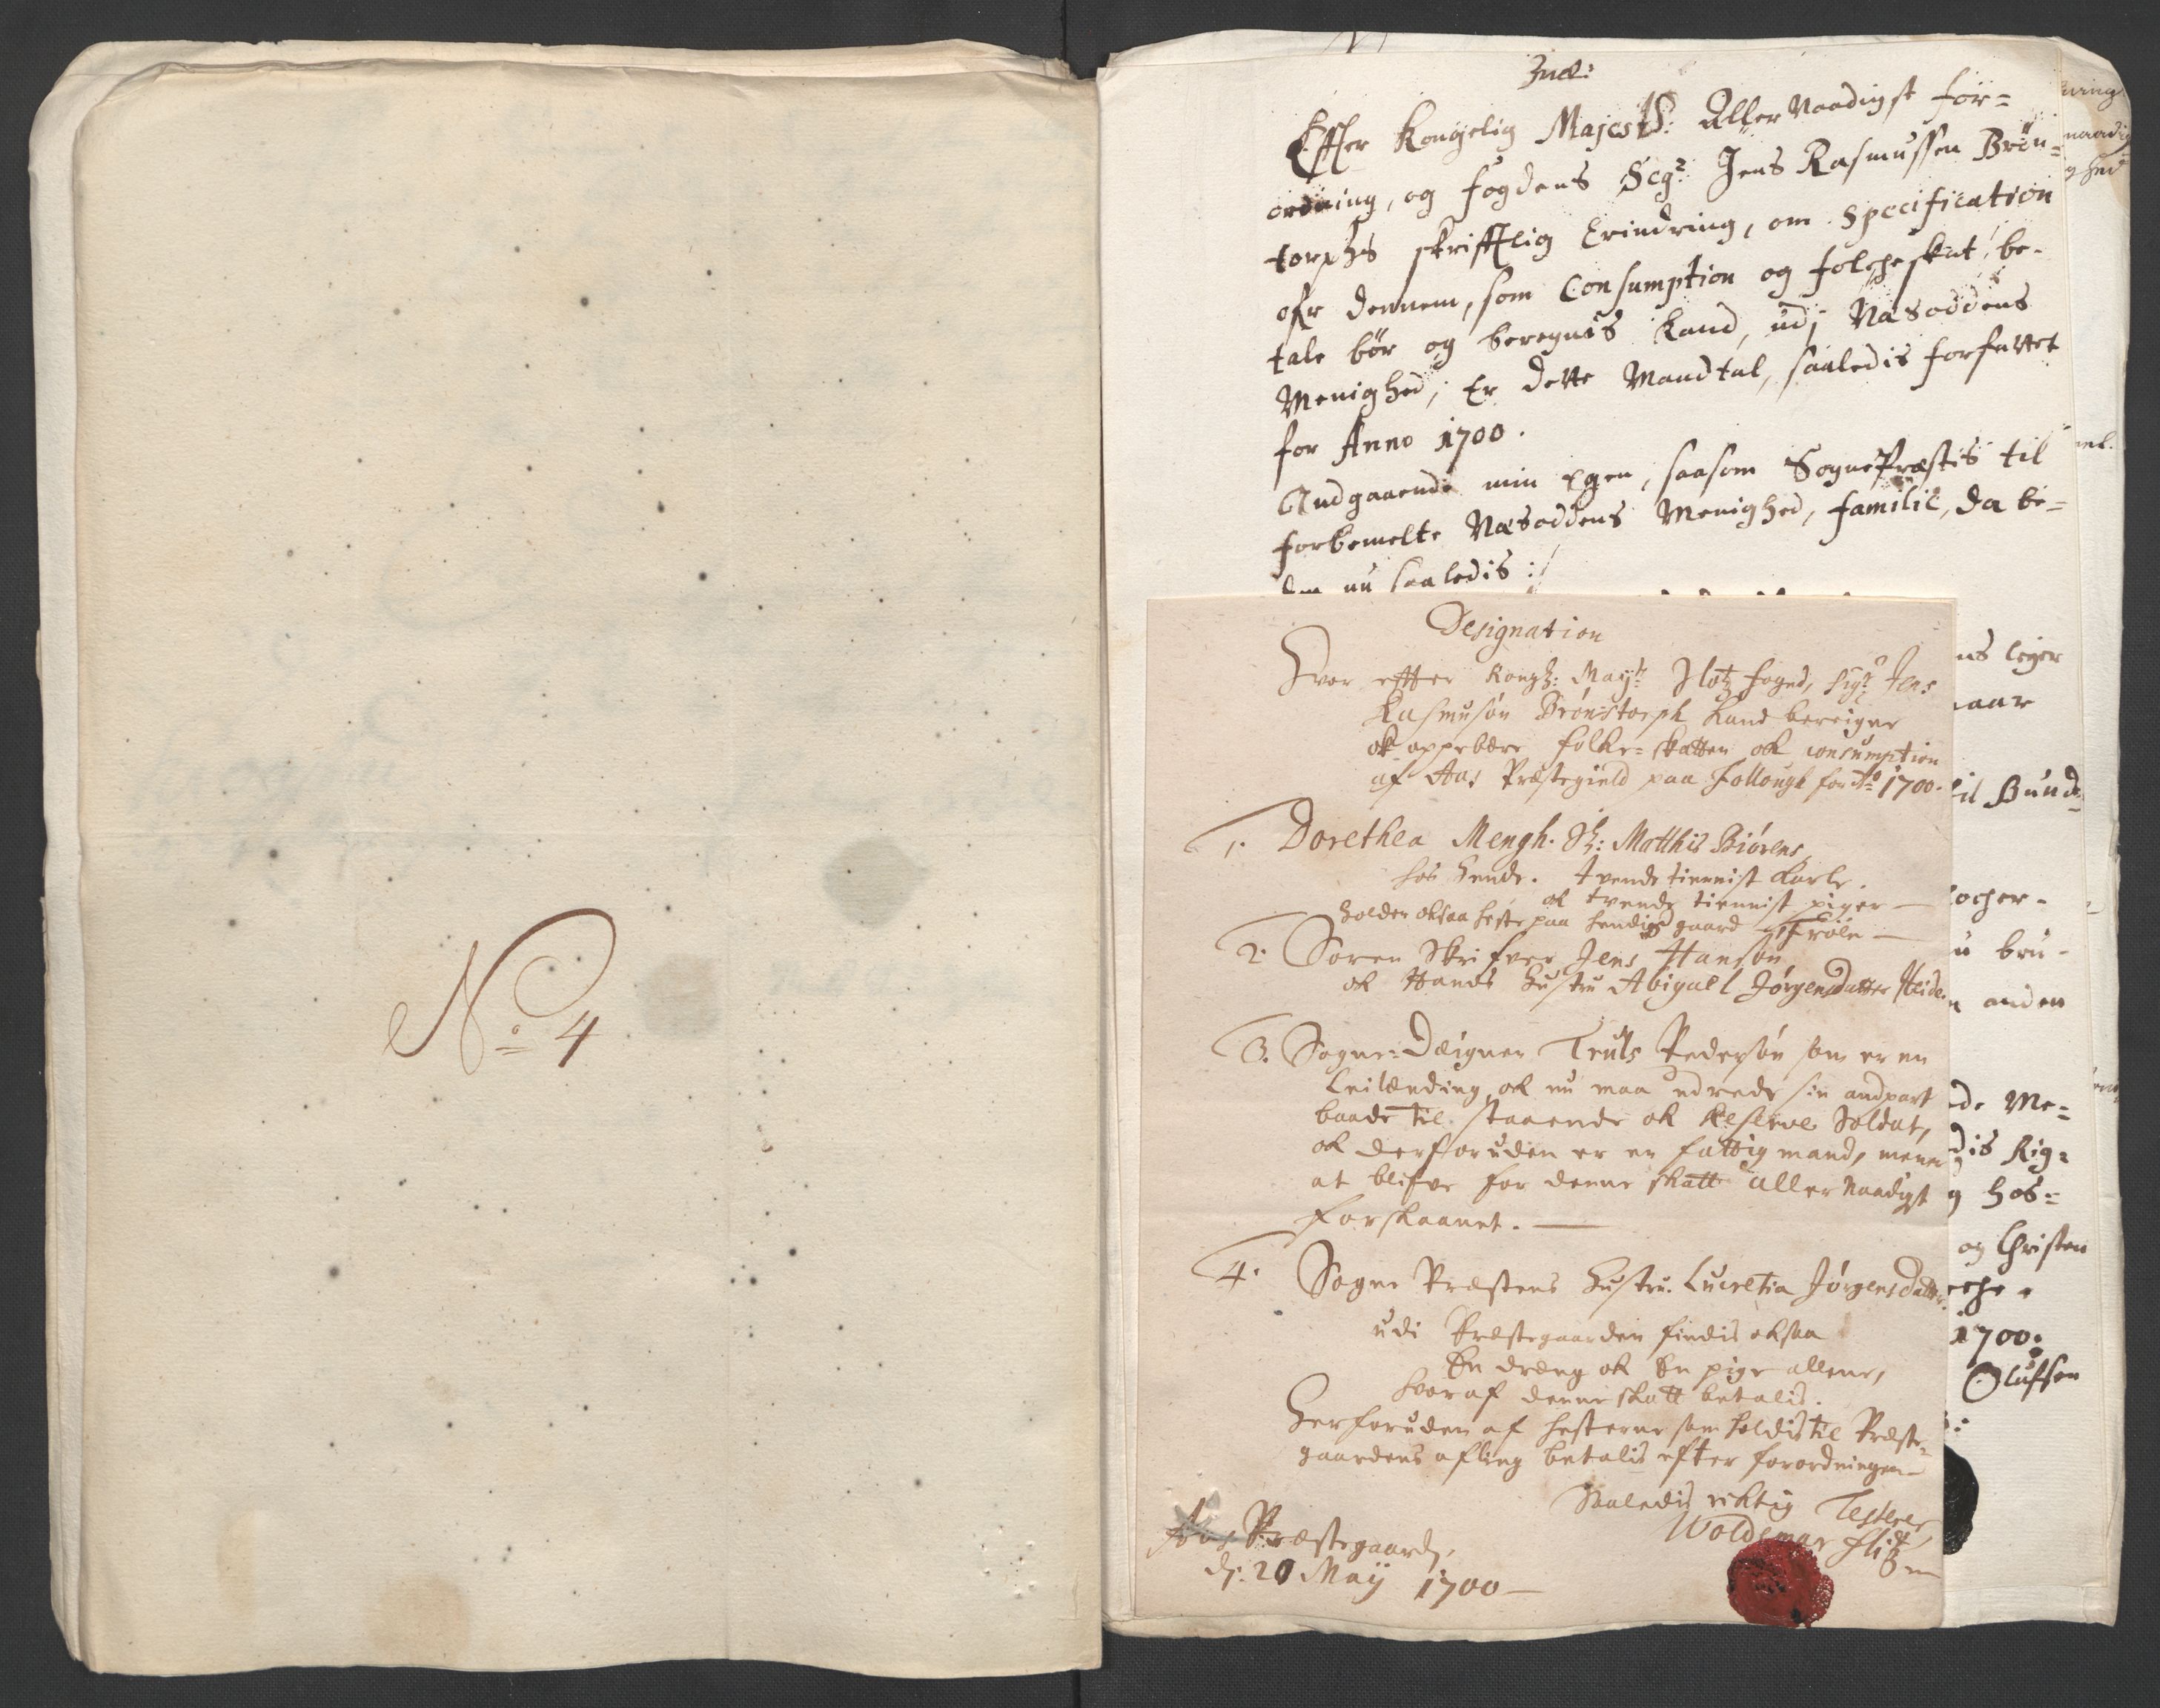 No 4
Efter Kongelig Majestts: Aller Naadigst for=
ordning, og fogdens Sigr Jens Rasmussen Brøn=
torphs skrifftlig Erindring, om Specification
ofr dennem, som Consumption og folcheskat, be-
tale bør og beregnis kand, udj Næsoddens
Menighed, Er dette Mandtal, saaledis forfattet
for Anno 1700.
Andgaaende min egen, saasom SognePræstis til
forbemelte Næsoddens Menighed, familie, da be=
nu saaledis:
Designation
Hvor efter Kongl: Mayts fogud, Sigr Jens
Rasmusøn Brønstorph kand bereigne
ok oppebære folke=skatten ok consumption
af Aas Præstegield paa Follough for Ao 1700.
1. Dorethea Mengh. Sl: Matthis Biørens,
hos hende. tvende tiennist karle.
ok tvende tiennist piger —
holder oksaa heste paa hendis gaard Frøln —
2. Soren Skrifver Jens Hansøn
ok Hands hustru Abigael Jørgensdatter
3. Sogne=Deigner Truls Pedersøn som er en
Leilending, ok nu maa udrede sin andpart
baade til staaende ok Reserve Soldat,
ok derforuden er en fattig mand, mener
at blifve for denne skatt allernaadigst
forskaanet. —
4. Sogne Præstens hustru. Lucretia Jørgensdatter.
udi Præstegaarden findis oksaa
En dreng ok En pige allene,
hvoraf denne skatt betalis.
Herforuden af hesterne som holdis til Præste=
gaardens afling betalis efter forordningen —
Saaledis riktig Testerer
Woldemar
Aas Præstegaard,
d. 20 Maij 1700 —
ns
aar
til Bund=
ocher-
u bru-
n anden
de Me=
dis Rig=
g hos=
og Christen
1700.
Olufsen